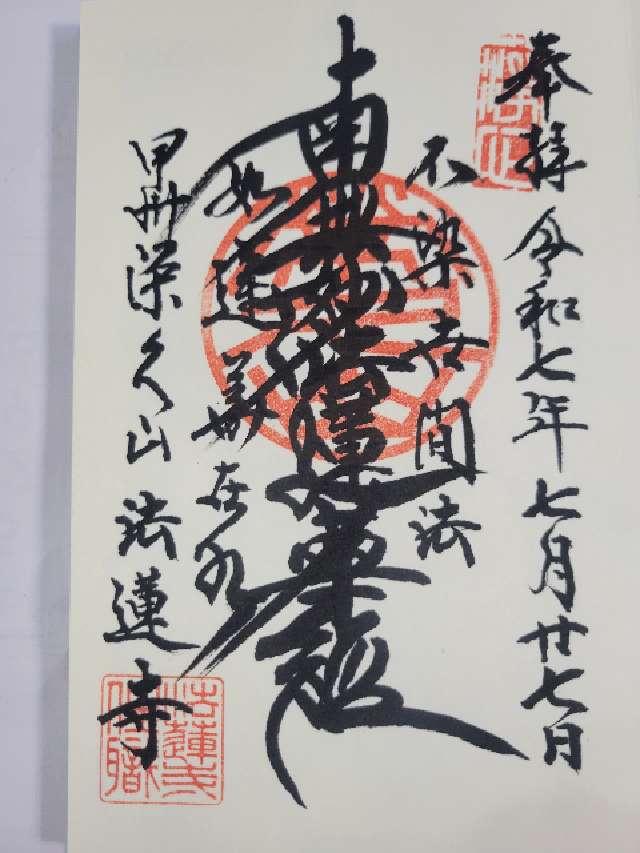 奉拝
令和七年七月廿七日
不染世間法
南無妙法蓮華経
如蓮華在水
甲州深久山法蓮寺